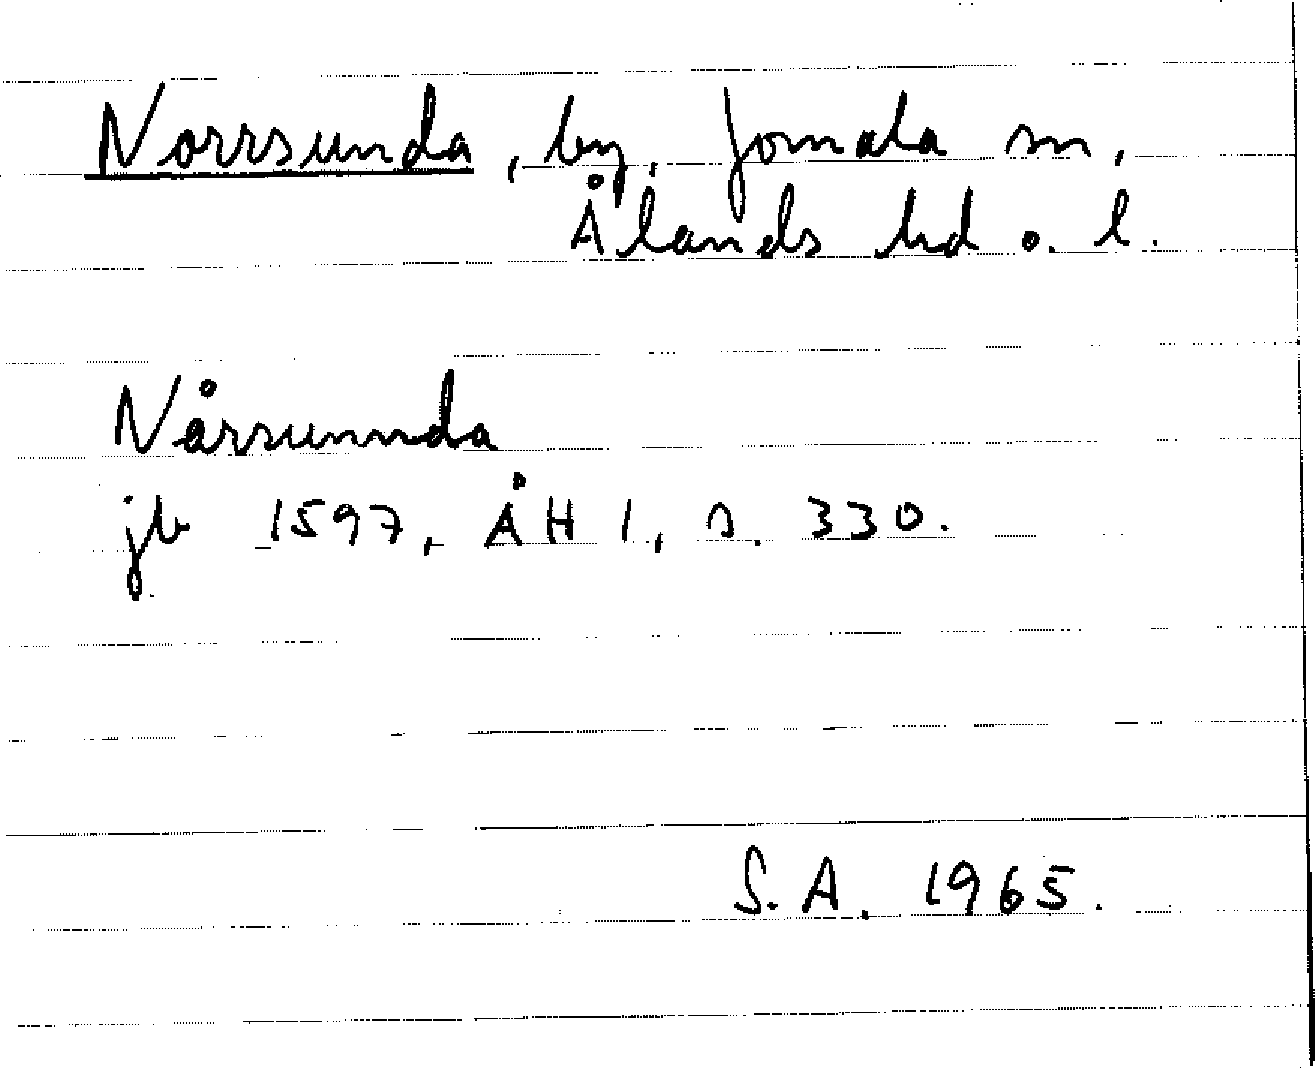 Norrsunda, by, Jomala sn,
Ålands hd o. l.
Nårsunnda
jb 1597, ÅH 1, s. 330.
S.A. 1965.